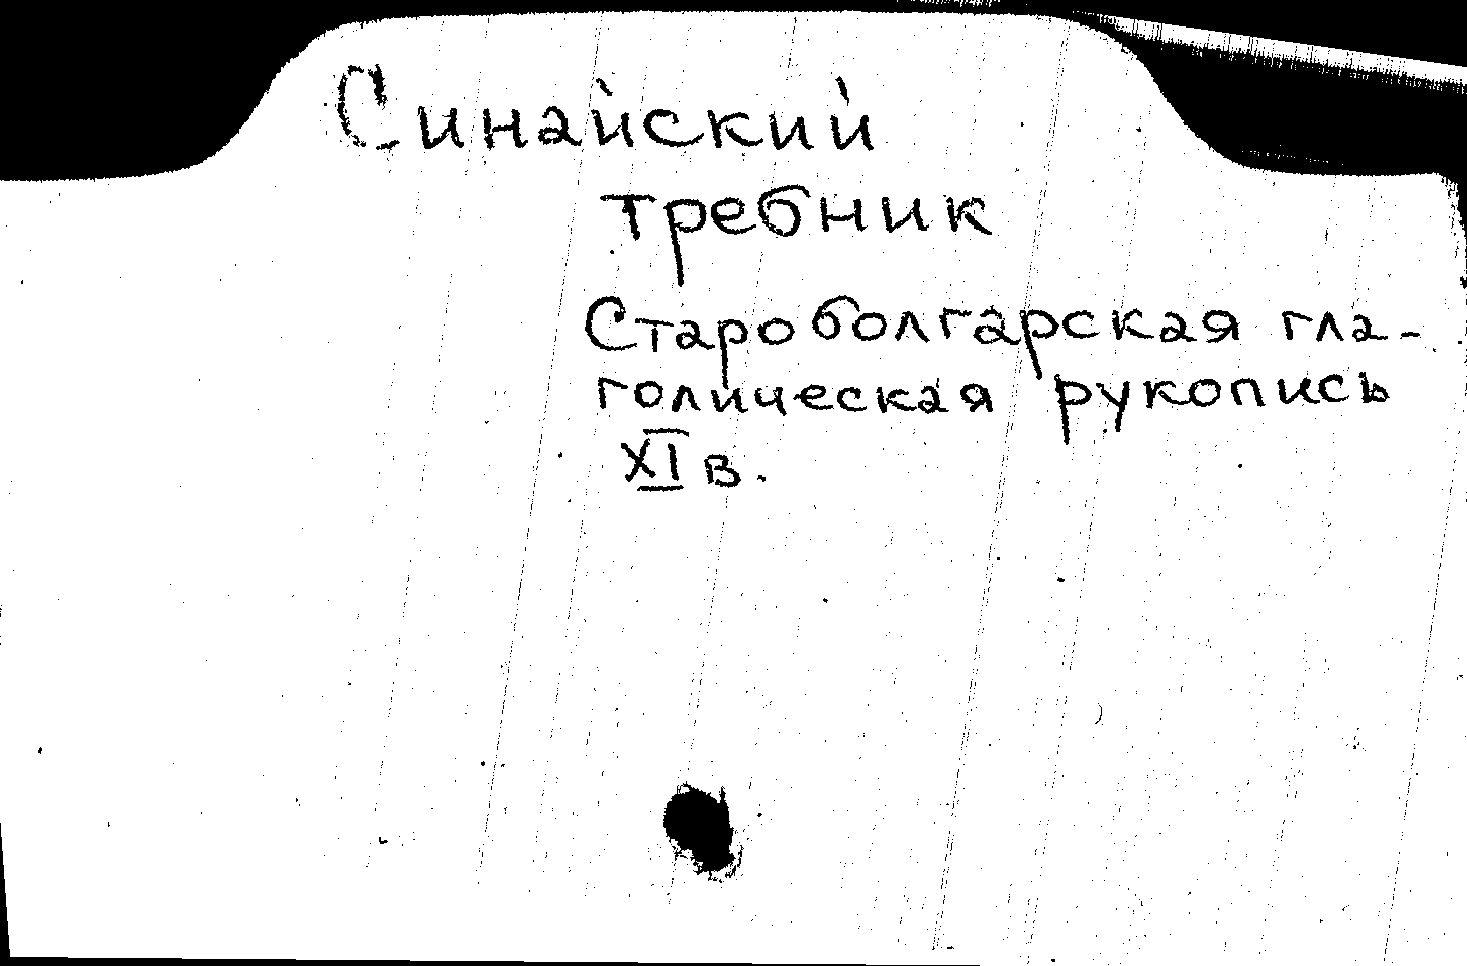 Синайский
требник
Староболгарская гла-
голическая рукопись
XI в.